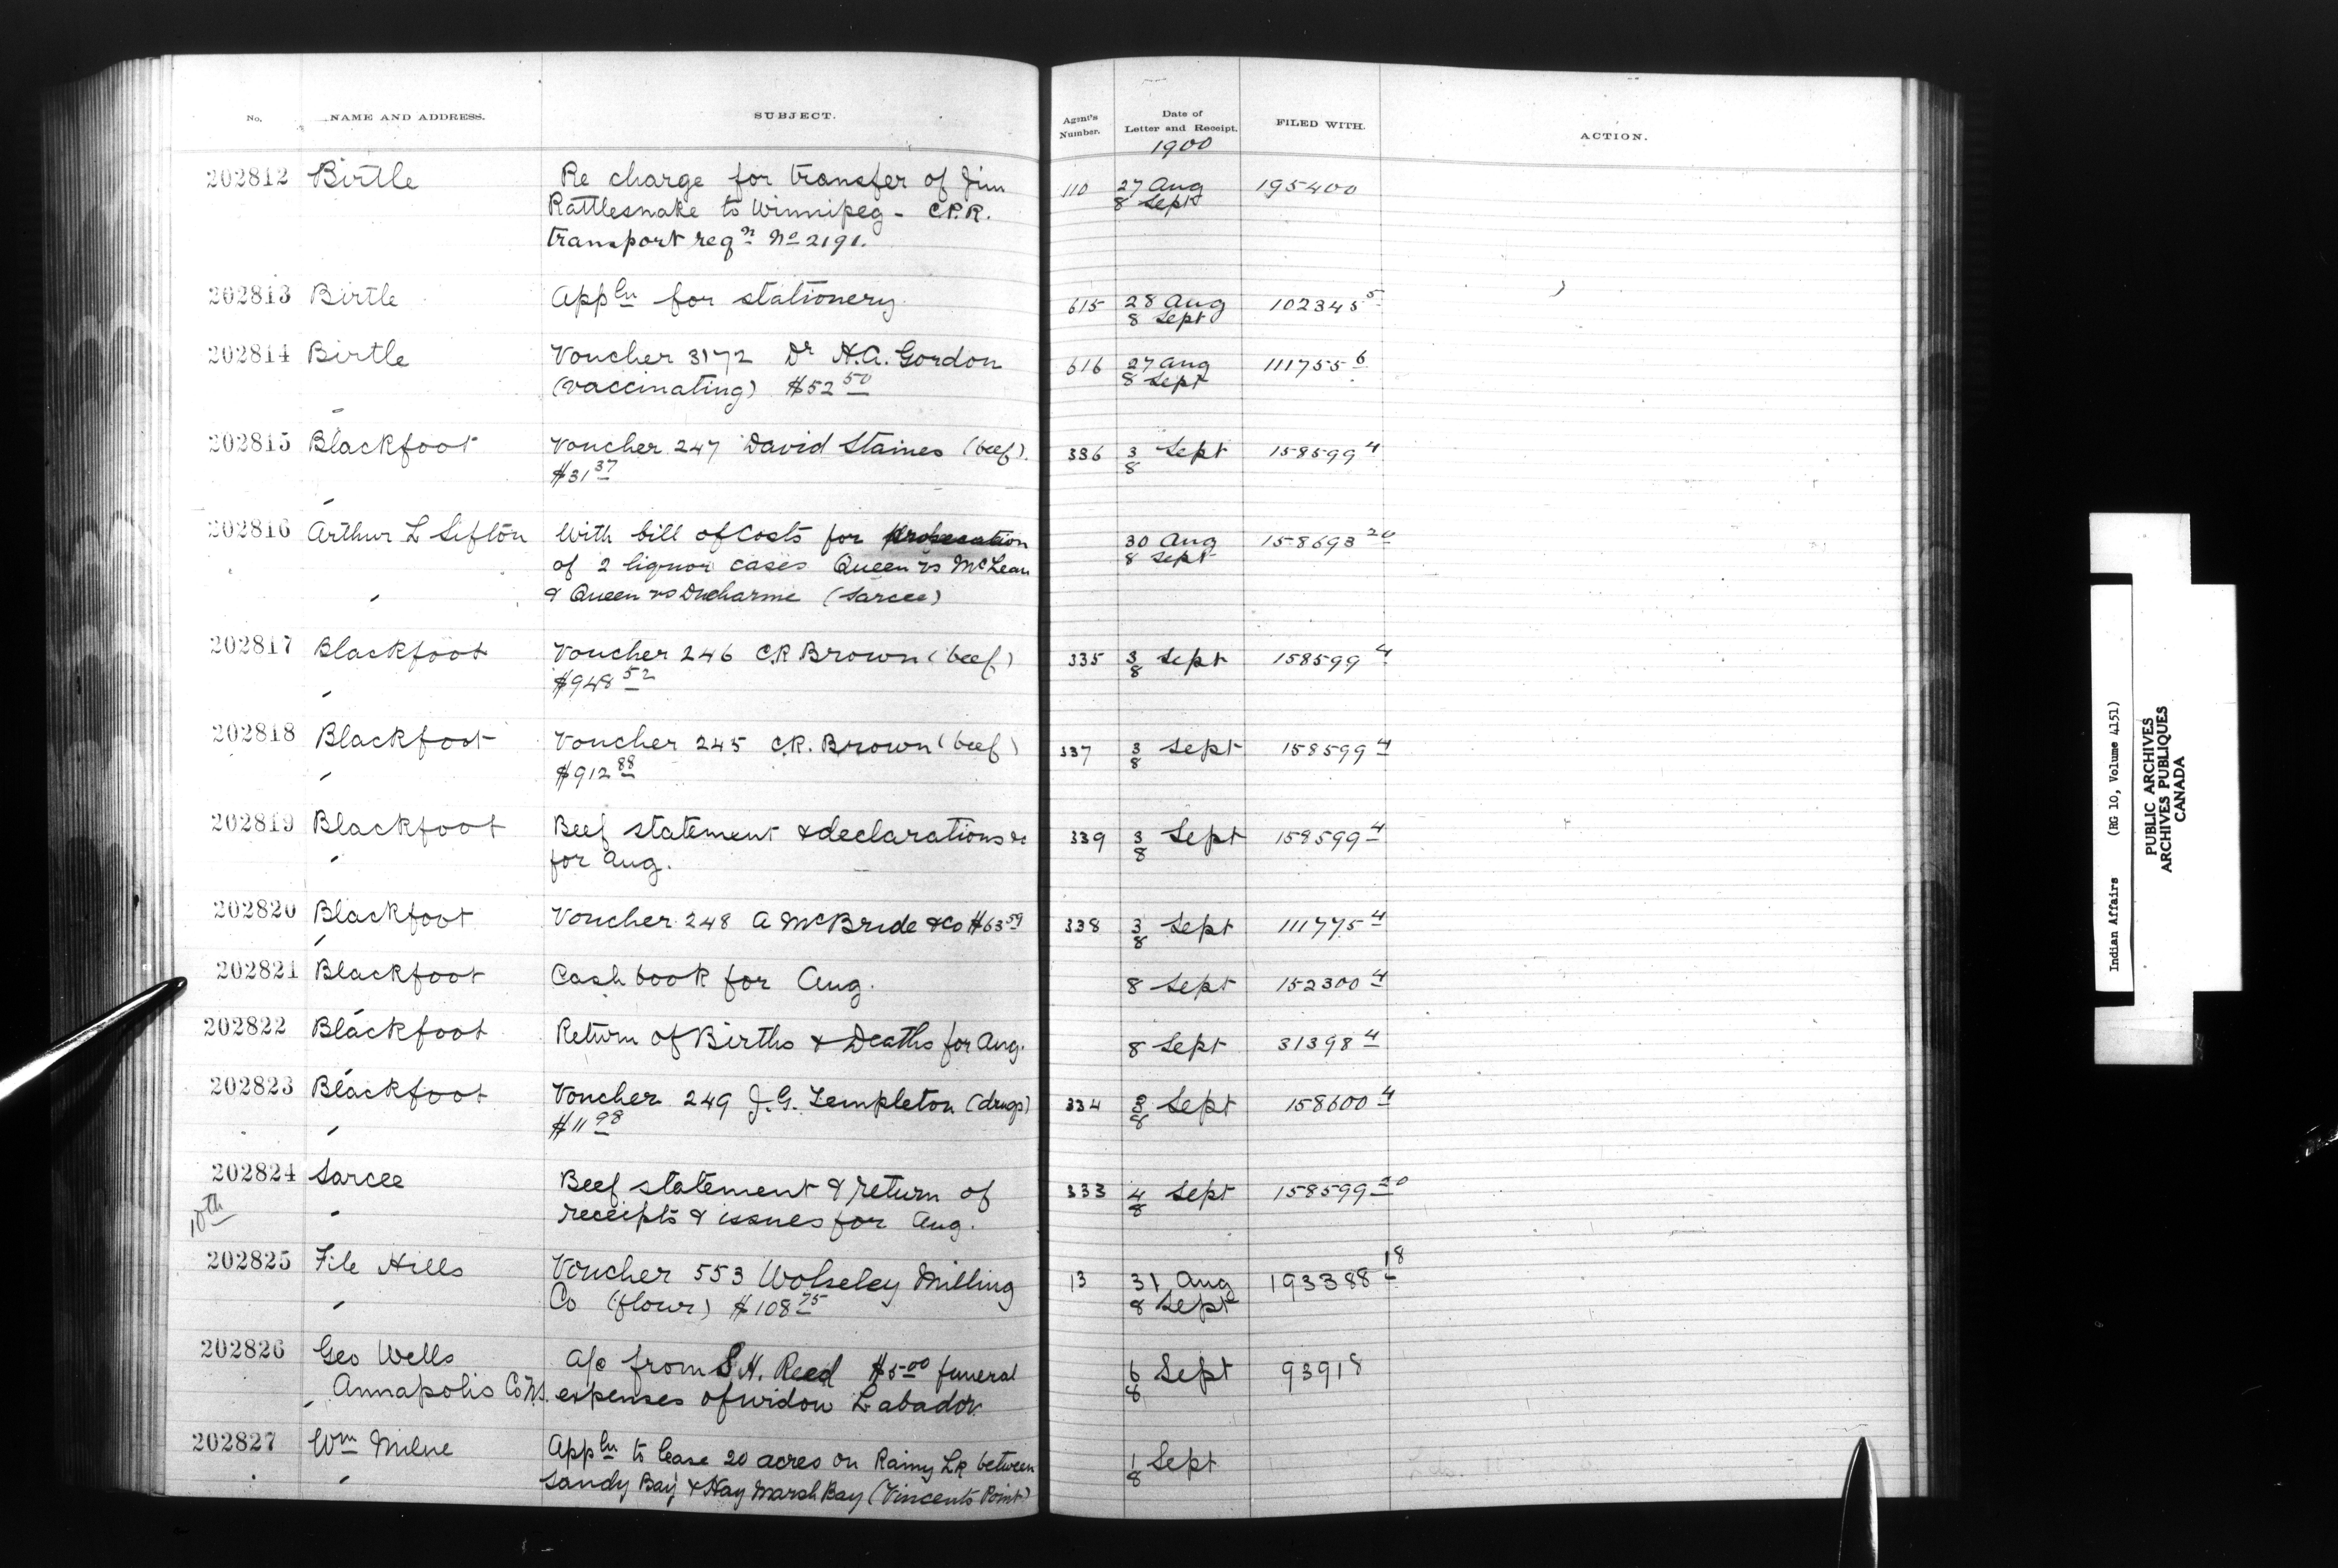 No. NAME AND ADDRESS. SUBJECT. Agent's Number. Date of Letter and Receipt. FILED WITH. ACTION.
1900
202812 Birtle Re charge for transfer of Jim 110 27 Aug 195400
Rattlesnake to Winnipeg - C.P.R. 8 Sept
transport reqn No 2191.
202813 Birtle Appln for stationery 615 28 Aug 102345 5
8 Sept
202814 Birtle Voucher 3172 Dr H.A. Gordon 616 27 Aug 111755 6
(vaccinating) $52 50 8 Sept
202815 Blackfoot Voucher 247 David Staines (beef). 336 3 Sept 158599 4
$31 37 8
202816 Arthur L Sifton With bill of Costs for prosecution 30 Aug 158693 20
of 2 liquor cases Queen vs McLean 8 Sept
& Queen vs Ducharme (Sarcee)
202817 Blackfoot Voucher 246 C.R Brown (beef) 335 3 Sept 158599 4
$948 52 8
202818 Blackfoot Voucher 245 C.R. Brown (beef) 337 3 Sept 158599 4
$912 88 8
202819 Blackfoot Beef statement & declarations re 339 3 Sept 158599 4
for Aug. 8
202820 Blackfoot Voucher 248 A McBride & Co $63 59 338 3 Sept 111775 4
8
202821 Blackfoot Cash book for Aug. 8 Sept 152300 4
202822 Blackfoot Return of Births & Deaths for Aug. 8 Sept 31398 4
202823 Blackfoot Voucher 249 J.G. Templeton (drugs) 334 3 Sept 158600 4
$11 98 8
202824 Sarcee Beef statement & return of 333 4 Sept 158599 20
10th receipts & issues for Aug. 8
202825 File Hills Voucher 553 Wolseley Milling 13 31 Aug 193388 18
Co (flour) $108 75 8 Sept
202826 Geo Wells A/c from S H. Reed $5 00 funeral 6 Sept 93918
Annapolis Co N.S. expenses of widow Labador 8
202827 Wm Milne Appln to lease 20 acres on Rainy LR between 1 Sept
Sandy Bay & Hay Marsh Bay (Vincents Point) 8
Indian Affairs (RG 10, Volume 4151)
PUBLIC ARCHIVES
ARCHIVES PUBLIQUES
CANADA